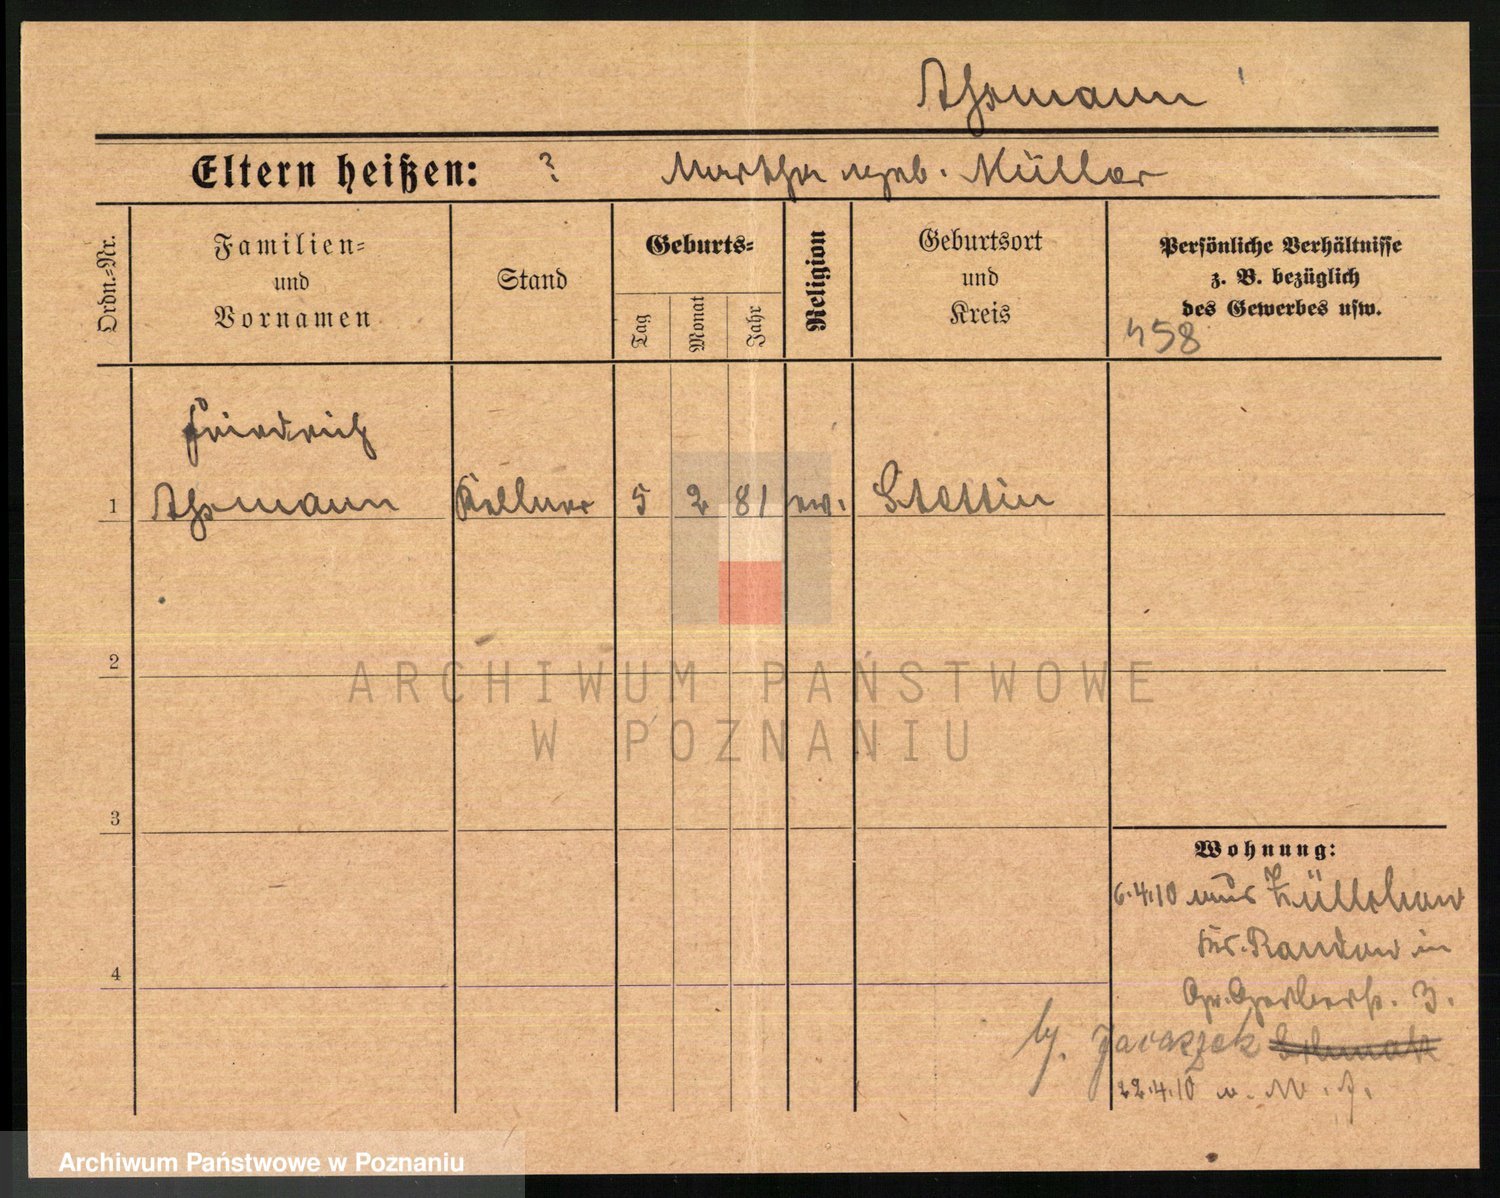 Ahrmann
Eltern heißen: ? Martha geb. Müller
Ordn.-Nr.
Familien-
und
Vornamen
Stand
Geburts-
Tag
Monat
Jahr
Religion
Geburtsort
und
Kreis
Persönliche Verhältnisse
z. B. bezüglich
des Gewerbes usw.
458
Friedrich
1 Ahrmann Kellner 5 2 81 ev. Stettin
2
3
4
Wohnung:
6.4.10 aus Züllchow
Krs. Randow in
Gr. Gerberstr. 3.
b/. Jaraszek
22.4.10
ARCHIWUM PAŃSTWOWE
W POZNANIU
Archiwum Państwowe w Poznaniu